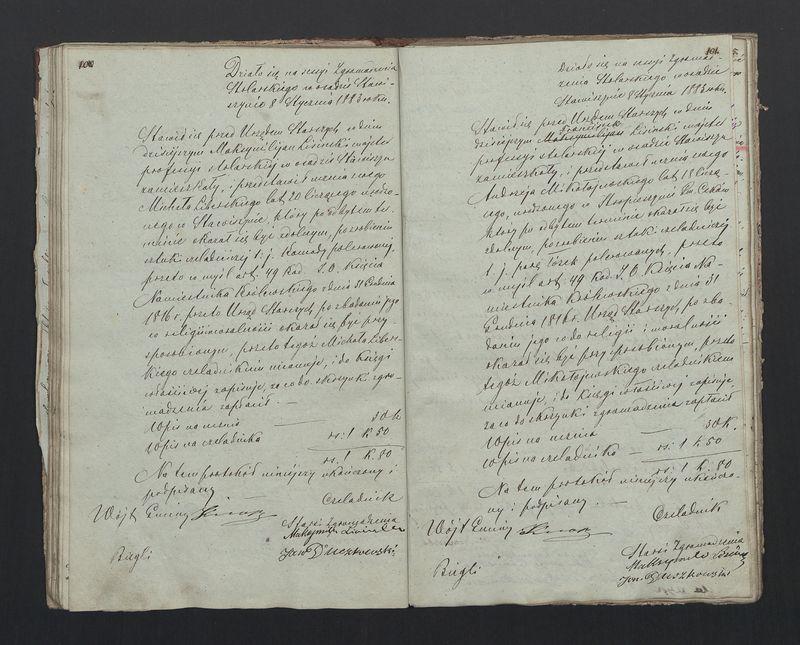 100
Działo się na sesyi Zgromadzenia
Stolarskiego w osadzie Stawi-
szynie 8 Stycznia 1883 roku.
Stawił się przed Urzędem Starszych w dniu
dzisiejszym Maksymilijan Lisinski majster
profesyi stolarskiej w osadzie Stawiszyn
zamieszkały, i przedstawił ucznia swego
Michała Liberskiego lat 20 liczącego urodzo-
nego w Stawiszynie, który po odbytem ter-
minie okazał się być zdolnym, po zrobieniu
sztuki czeladniczej t: j. Komody polerowanej,
przeto w myśl art: 49 Rad. J. O. Księcia
Namiestnika Królewskiego z dnia 31 Grudnia
1816 r. przeto Urząd Starszych, po zbadaniu jego
co religii i moralności okazał się być przy-
sposobionym, przeto tegoż Michała Liber-
skiego czeladnikiem mianuje, i do Księgi
właściwej zapisuje, za co do skrzynki zgro-
madzenia zapłacił: —
Wpis na ucznia 30 k
Wpis na czeladnika rs: 1 k 50
rs. 1 k. 80
Na tem protokół niniejszy ukończony i
podpisany —
Czeladnik
Wójt Gminy
Starsi Zgromadzenia
Jan Duszkowski
Biegli
101.
Działo się na sesyi Zgroma-
dzenia Stolarskiego w osadzie
Stawiszynie 8 Stycznia 1883 roku.
Stawił się przed Urzędem Starszych w dniu
Franciszek
dzisiejszym Maksymilijan Lisinski majster
profesyi stolarskiej w osadzie Stawiszyn
zamieszkały, i przedstawił ucznia swego
Andrzeja Mikołajewskiego lat 18 liczą-
cego, urodzonego w Gm. Ceków
który po odbytem terminie okazał się być
zdolnym, po zrobieniu sztuki czeladniczej
t. j. parę łóżek polerowanych, przeto
w myśl art: 49 Rad J. O. Księcia Na-
miestnika Królewskiego z dnia 31
Grudnia 1816 r. Urząd Starszych, po zba-
daniu jego co do religii i moralności
okazał się być przysposobionym, przeto
tegoż Mikołajewskiego czeladnikiem
mianuje, i do Księgi właściwej zapisuje
za co do skrzynki zgromadzenia zapłacił
Wpis na ucznia 30 k.
Wpis na czeladnika — rs: 1 k 50
rs. 1 k. 80
Na tem protokół niniejszy ukończo-
ny i podpisany. —
Czeladnik
Wójt Gminy
Starsi Zgromadzenia
Jan Duszkowski
Biegli